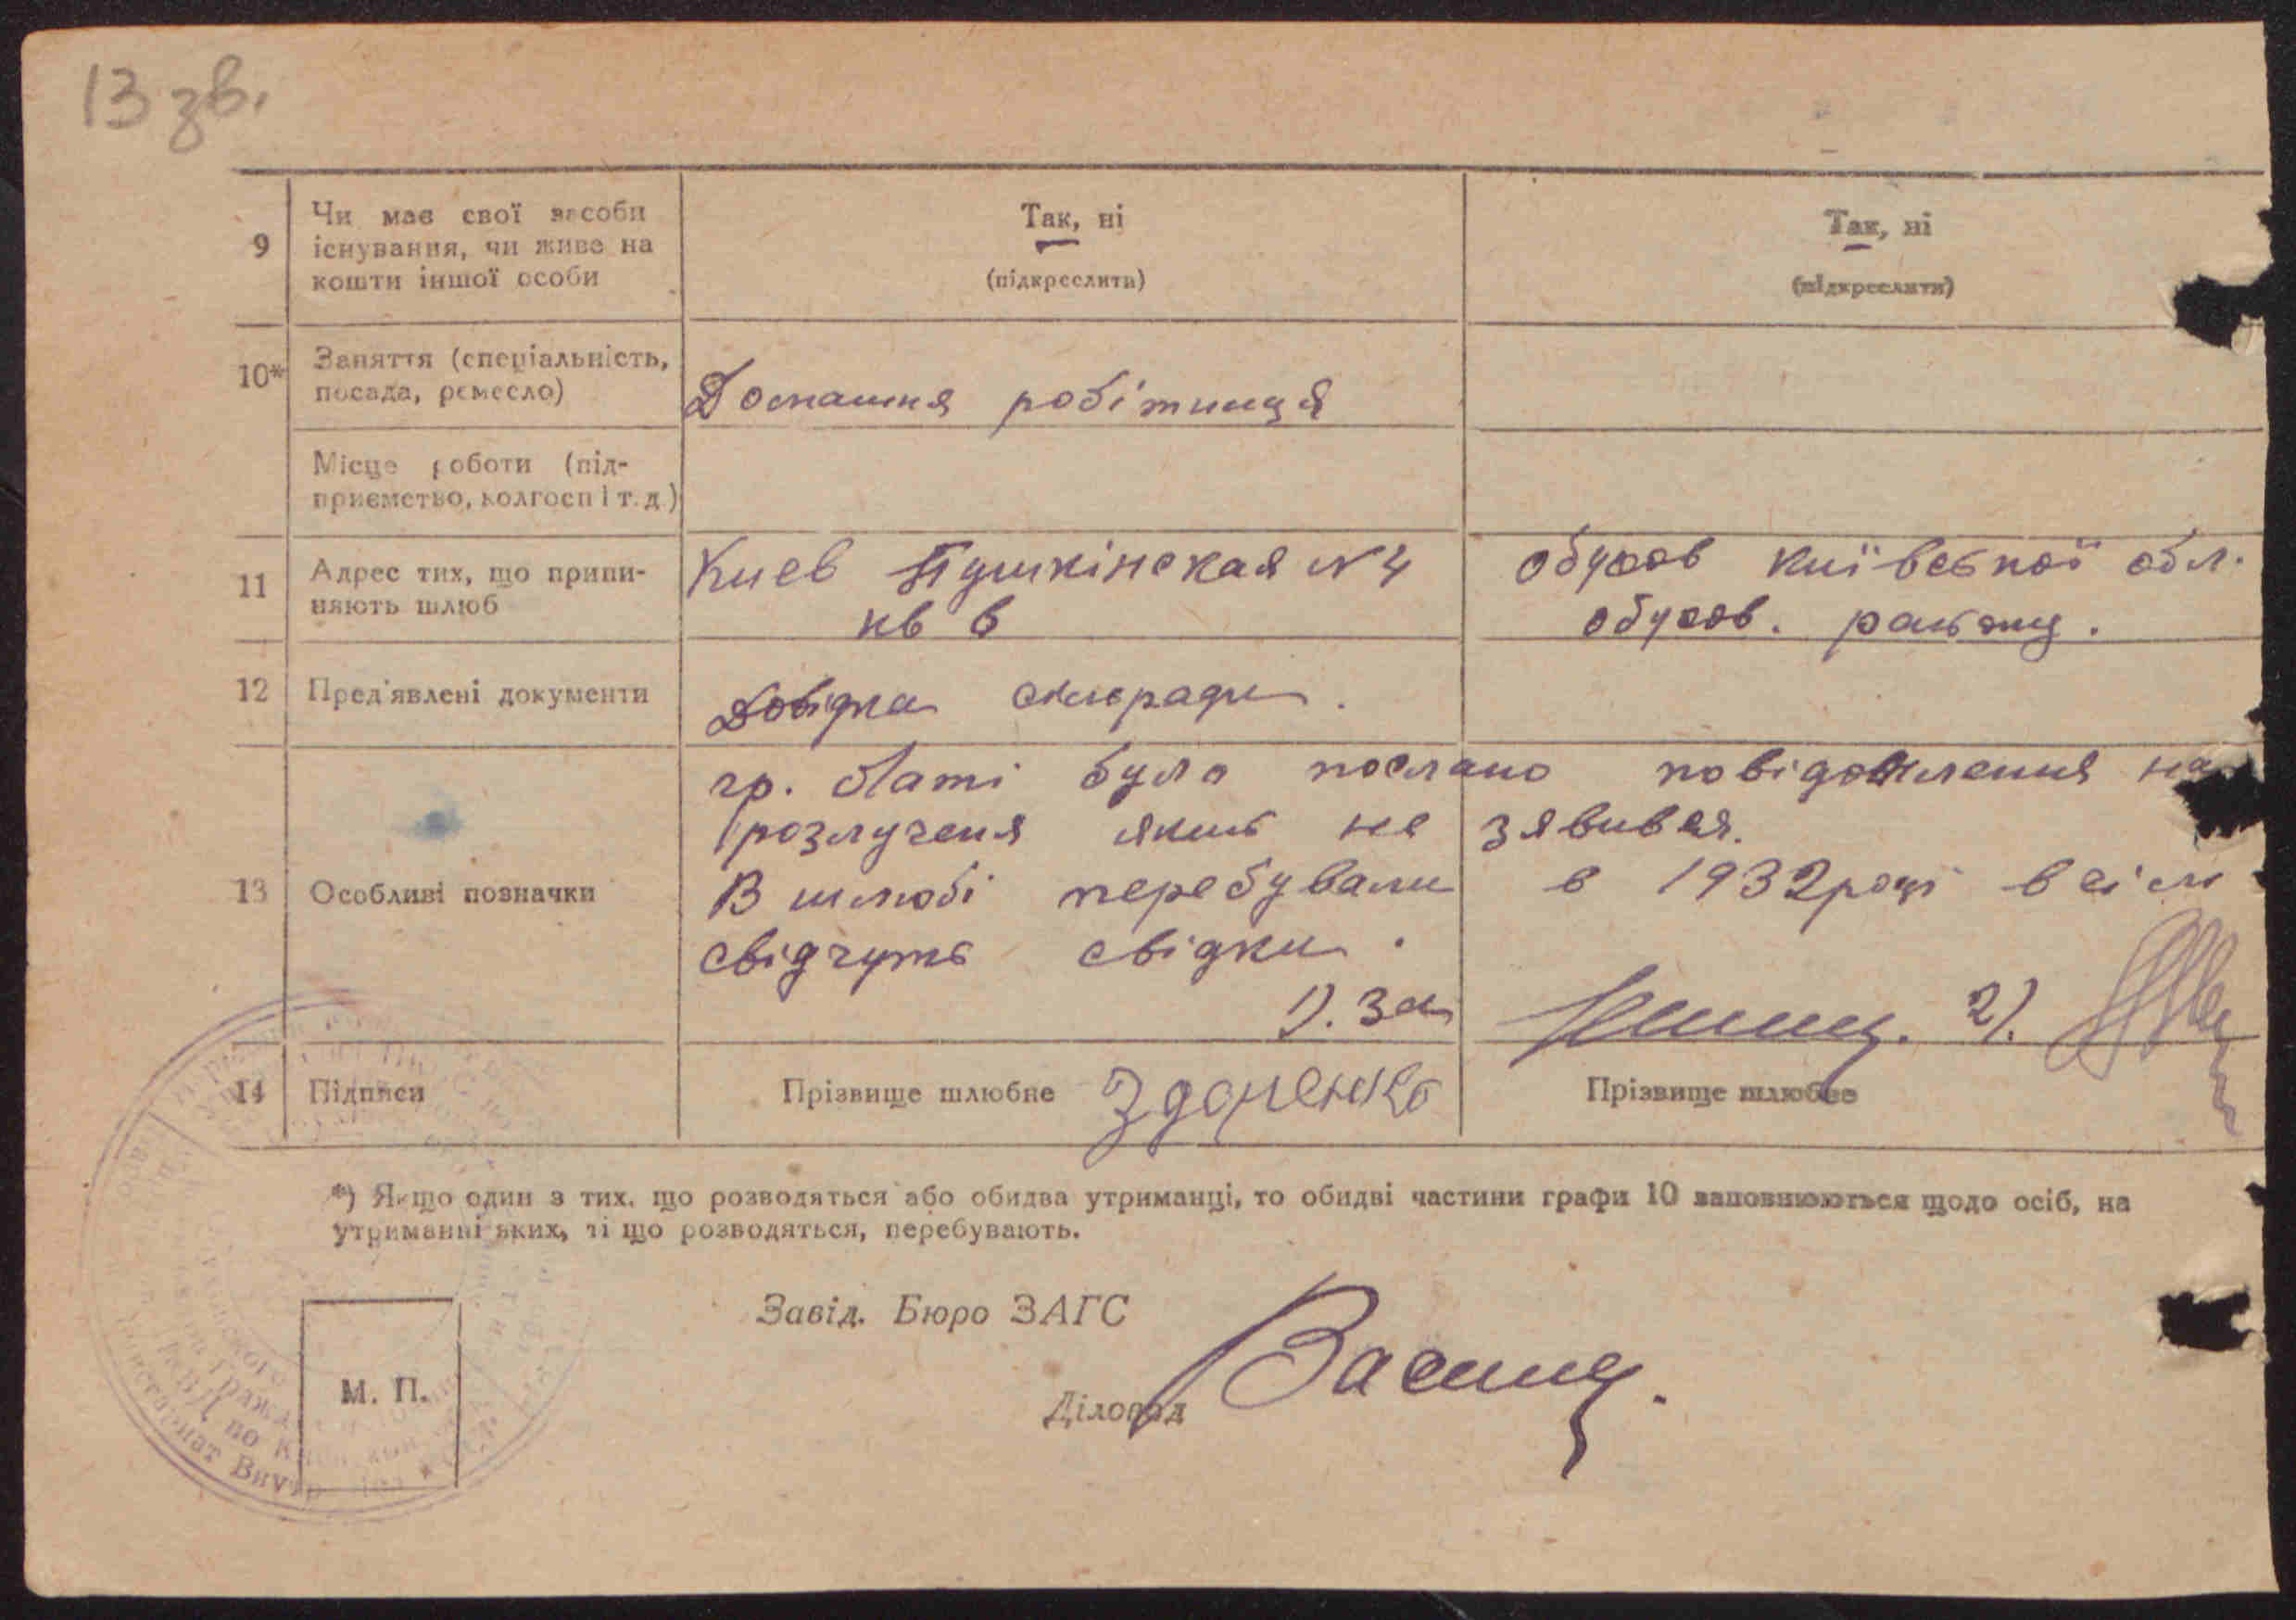 13 зв.
9
Чи має свої засоби
існування, чи живе на
кошти іншої особи
Так, ні
(підкреслити)
Так, ні
(підкреслити)
10*
Заняття (спеціальність,
посада, ремесло)
Домашня робітниця
Місце роботи (під-
приємство, колгосп і т.д.)
11
Адрес тих, що припи-
няють шлюб
Киев Пушкінская №4
кв 6
Обухов Київської обл.
обухов. району.
12
Пред'явлені документи
Довідка сільради.
13
Особливі позначки
гр. було послано повідомлення на
розлученя який не зявився.
В шлюбі перебували в 1932 році
свідчуть свідки.
1). 2).
14
Підписи
Прізвище шлюбне
Прізвище шлюбне
*) Якщо один з тих, що розводяться або обидва утриманці, то обидві частини графи 10 заповнюються щодо осіб, на
утриманні яких, ті що розводяться, перебувають.
Завід. Бюро ЗАГС
Діловод
М. П.